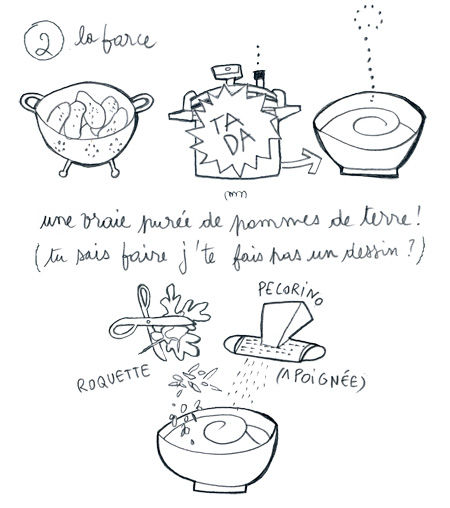 2 la farce
TA
DA
une vraie purée de pommes de terre!
(tu sais faire j'te fais pas un dessin?)
PECORINO
ROQUETTE
(1 POIGNÉE)